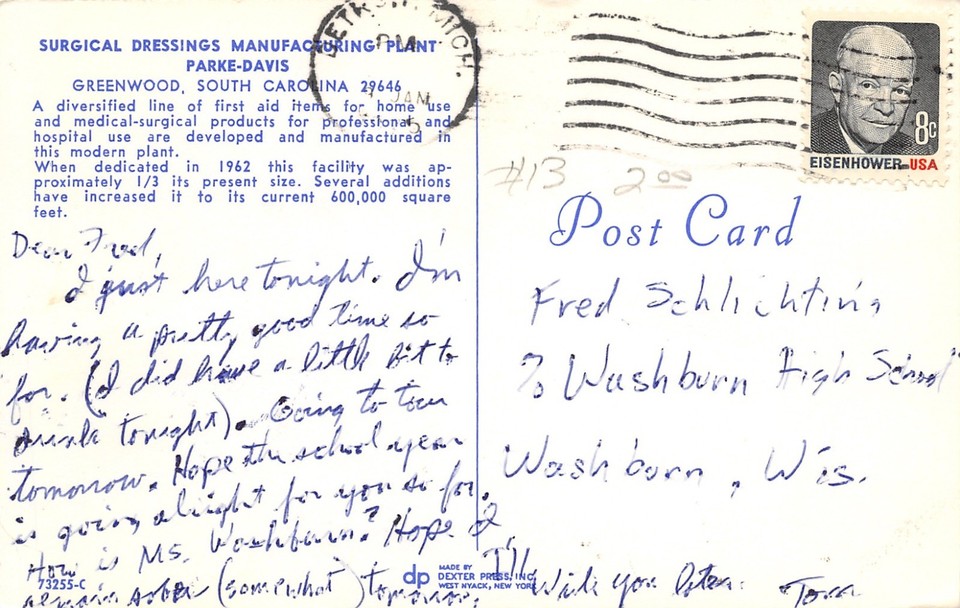 SURGICAL DRESSINGS MANUFACTURING PLANT
PARKE-DAVIS
GREENWOOD, SOUTH CAROLINA 29646
A diversified line of first aid items for home use
and medical-surgical products for professional and
hospital use are developed and manufactured in
this modern plant.
When dedicated in 1962 this facility was ap-
proximately 1/3 its present size. Several additions
have increased it to its current 600,000 square
feet.
Dear Fred,
I just here tonight. I'm
having a pretty good time so
far. (I did have a little bit to
drink tonight). Going to tour
tomorrow. Hope the school year
is going alright for you so far.
How is Ms. Washburn? Hope I
remain sober (somewhat) tomorrow.
73255-C
DETROIT, MICH.
PM
JAN
8c
EISENHOWER-USA
#13 2.00
Post Card
Fred Schlichting
% Washburn High School
Washburn, Wis.
I'll
Write you later. Tom
dp
MADE BY
DEXTER PRESS, INC.
WEST NYACK, NEW YORK